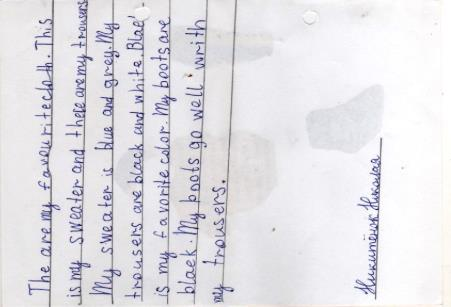 The are my favourite cloth. This
is my sweater and there are my trousers
My sweater is blue and grey. My
trousers are black and white. Blac
is my favorite color. My boots are
black. My boots go well writh
my trousers.
Никитёнок Николая